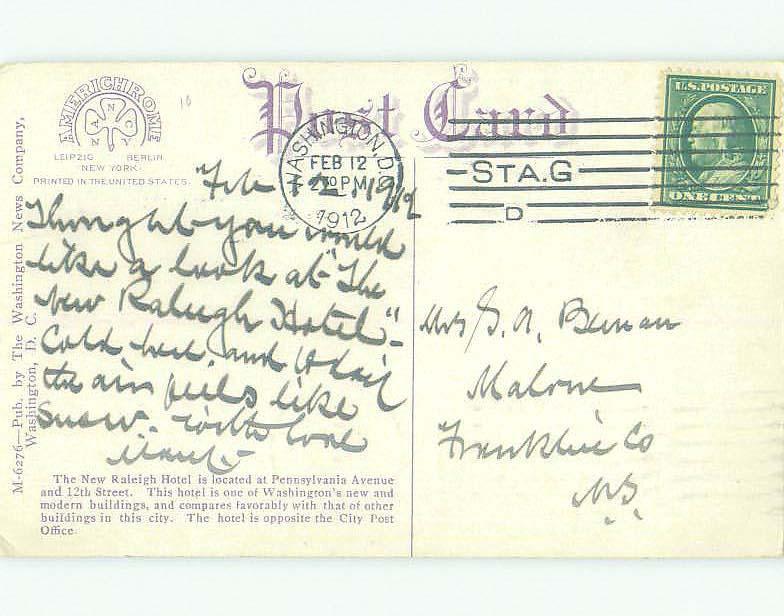 AMERICHROME
A N C Y
LEIPZIG BERLIN
NEW YORK
PRINTED IN THE UNITED STATES.
10
Post Card
WASHINGTON, D.C.
FEB 12
2 30 PM
1912
STA. G
D
U.S. POSTAGE
ONE CENT
M-6276—Pub. by The Washington News Company,
Washington, D. C.
Feb 12, 1912
Thought you would
like a look at "The
New Raleigh Hotel"-
Cold here, and
the air feels like
Snow. with love
The New Raleigh Hotel is located at Pennsylvania Avenue
and 12th Street. This hotel is one of Washington's new and
modern buildings, and compares favorably with that of other
buildings in this city. The hotel is opposite the City Post
Office.
Mrs G. A. Beman
Malone
Franklin Co
N.Y.